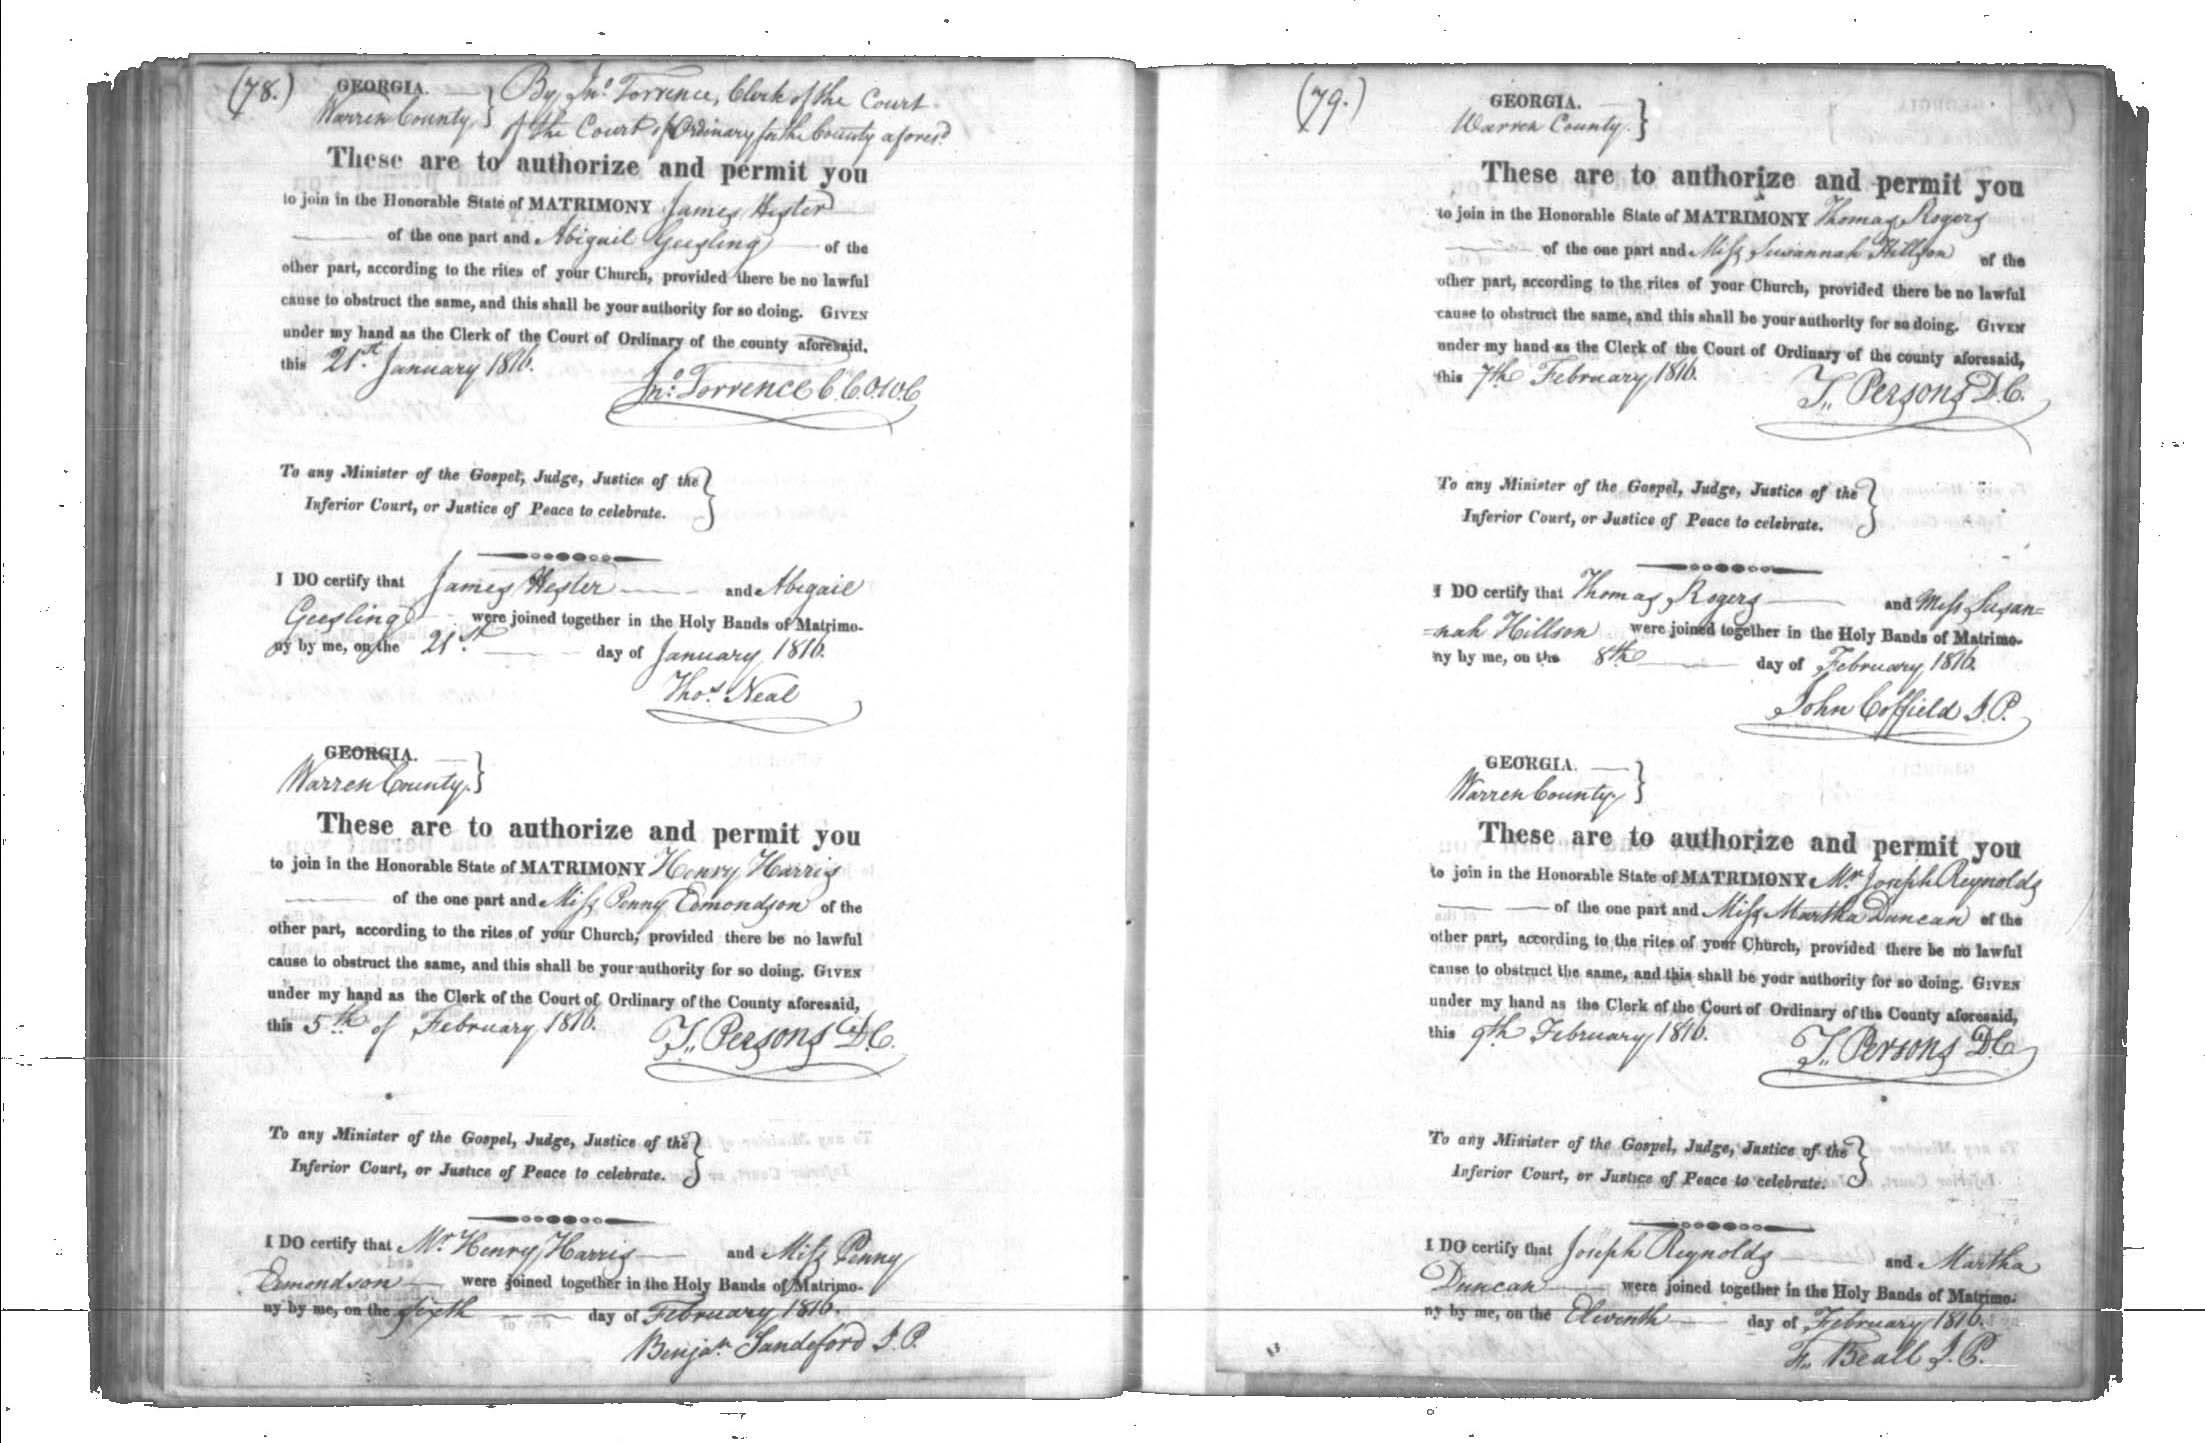 (78.)
GEORGIA. } By Jno. Torrence, Clerk of the Court
Warren County, } of the Court of Ordinary for the County aforesd.
These are to authorize and permit you
to join in the Honorable State of MATRIMONY James Hester
of the one part and Abigail Geesling of the
other part, according to the rites of your Church, provided there be no lawful
cause to obstruct the same, and this shall be your authority for so doing. GIVEN
under my hand as the Clerk of the Court of Ordinary of the county aforesaid,
this 21st. January 1816.
Jno. Torrence C.C.O.W.C
To any Minister of the Gospel, Judge, Justice of the }
Inferior Court, or Justice of Peace to celebrate. }
I DO certify that James Hester and Abigail
Geesling were joined together in the Holy Bands of Matrimo-
ny by me, on the 21st. day of January 1816.
Thos. Neal
GEORGIA. }
Warren County. }
These are to authorize and permit you
to join in the Honorable State of MATRIMONY Henry Harris
of the one part and Miss Penny Edmondson of the
other part, according to the rites of your Church, provided there be no lawful
cause to obstruct the same, and this shall be your authority for so doing. GIVEN
under my hand as the Clerk of the Court of Ordinary of the County aforesaid,
this 5th of February 1816.
T,, Persons D.C.
To any Minister of the Gospel, Judge, Justice of the }
Inferior Court, or Justice of Peace to celebrate. }
I DO certify that Mr Henry Harris and Miss Penny
Edmondson were joined together in the Holy Bands of Matrimo-
ny by me, on the sixth day of February 1816.
Benjan. Sandeford J.P.
(79.)
GEORGIA. }
Warren County. }
These are to authorize and permit you
to join in the Honorable State of MATRIMONY Thomas Rogers
of the one part and Miss Susannah Hillson of the
other part, according to the rites of your Church, provided there be no lawful
cause to obstruct the same, and this shall be your authority for so doing. GIVEN
under my hand as the Clerk of the Court of Ordinary of the county aforesaid,
this 7th February 1816.
T,, Persons D.C.
To any Minister of the Gospel, Judge, Justice of the }
Inferior Court, or Justice of Peace to celebrate. }
I DO certify that Thomas Rogers and Miss Susan=
=nah Hillson were joined together in the Holy Bands of Matrimo-
ny by me, on the 8th day of February 1816.
John Coffield J.P.
GEORGIA. }
Warren County }
These are to authorize and permit you
to join in the Honorable State of MATRIMONY Mr. Joseph Reynolds
of the one part and Miss Martha Duncan of the
other part, according to the rites of your Church, provided there be no lawful
cause to obstruct the same, and this shall be your authority for so doing. GIVEN
under my hand as the Clerk of the Court of Ordinary of the County aforesaid,
this 9th February 1816.
T,, Persons D.C.
To any Minister of the Gospel, Judge, Justice of the }
Inferior Court, or Justice of Peace to celebrate. }
I DO certify that Joseph Reynolds and Martha
Duncan were joined together in the Holy Bands of Matrimo-
ny by me, on the Eleventh day of February 1816.
Beall J.P.